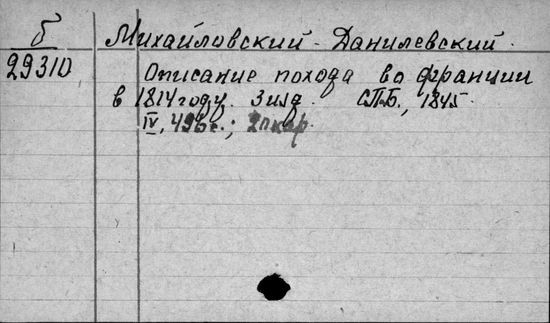 б
29310
Михайловский-Данилевский.
Описание похода во франции
в 1814 году. 3 изд. СПБ., 1845.
IV, 496 с.;